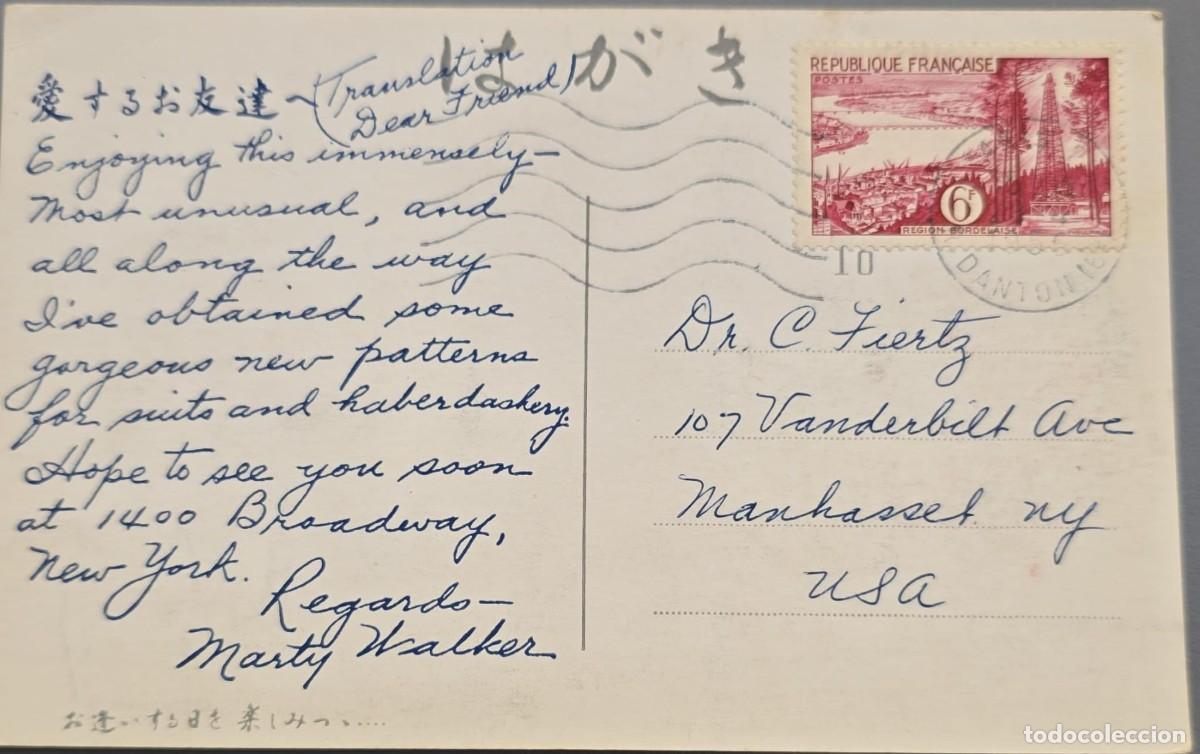 はがき
愛するお友達へ (Translation
Dear Friend)
Enjoying this immensely—
Most unusual, and
all along the way
I've obtained some
gorgeous new patterns
for suits and haberdashery.
Hope to see you soon
at 1400 Broadway,
New York.
Regards—
Marty Walker
お逢いする日を楽しみつゝ....
REPUBLIQUE FRANÇAISE
POSTES
6F
REGION BORDELAISE
10
DANTON
Dr. C. Fiertz
107 Vanderbilt Ave
Manhasset NY
USA
todocoleccion